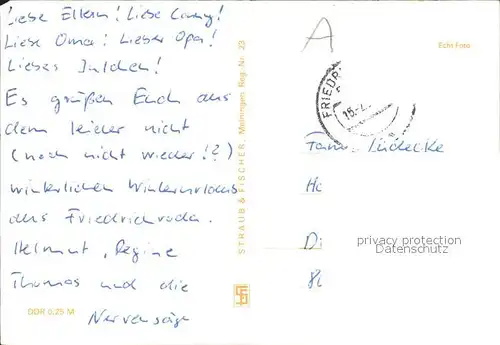 Liebe Eltern! Liebe Conny!
Liebe Oma! Lieber Opa!
Liebes Julchen!
Es grüßen Euch aus
dem leider nicht
(noch nicht wieder!?)
winterlichen Winterurlaub
aus Friedrichroda.
Helmut, Regine
Thomas und die
Nervensäge
DDR 0,25 M
STRAUB & FISCHER, Meiningen Reg. Nr. 33
A
Echt Foto
FRIEDR
Fam. Lüdecke
privacy protection
Datenschutz